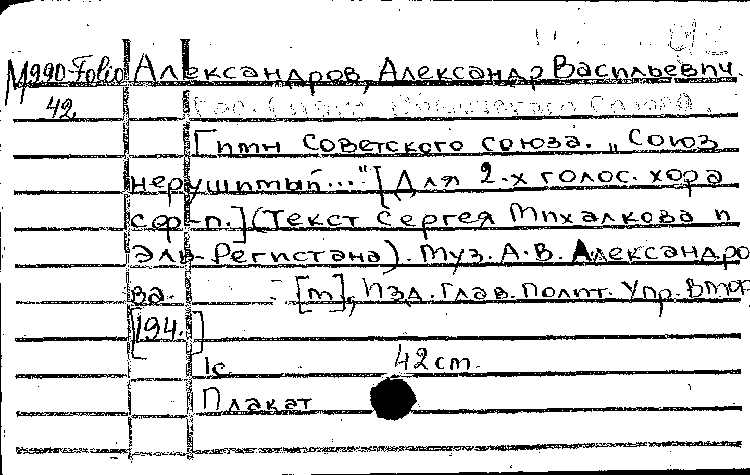 M990-Folio Александров, Александр Васильевич.
42.
Гимн Советского союза. „Союз
нерушимый..." [Для 2-х голос. хора
с ф-п.] (Текст Сергея Михалкова и
Эль-Регистана). Муз. А.В. Александро
ва. [м], Изд. Глав. Полит. Упр. ВМФ
[194.]
1с. 42cm.
Плакат